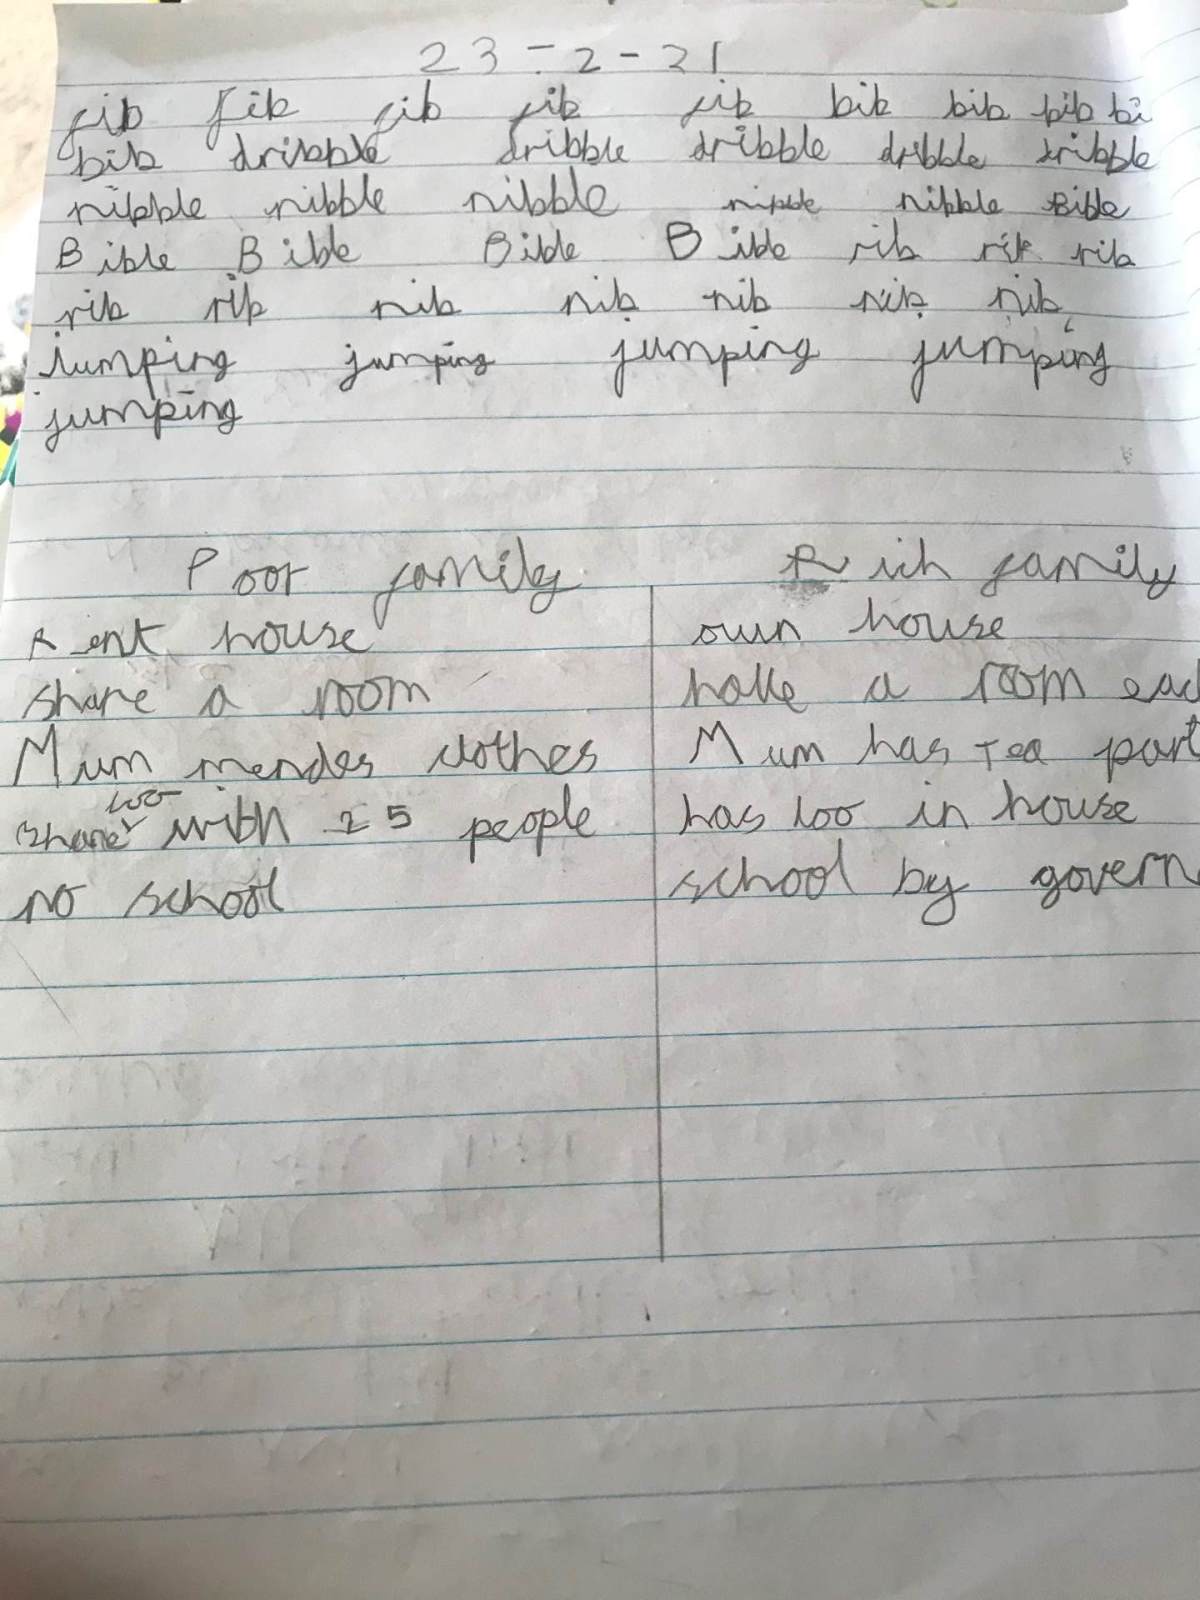 23-2-21
fib fib fib fib fib bib bib bib bi
bib dribble dribble dribble dribble dribble
nibble nibble nibble nibble nibble Bible
Bible Bible Bible Bible rib rib rib
rib rib nib nib nib nib nib
jumping jumping jumping jumping
jumping
Poor family Rich family
Rent house own house
share a room have a room eac
Mum mendes clothes Mum has Tea part
loo
share with 25 people has loo in house
no school school by govern